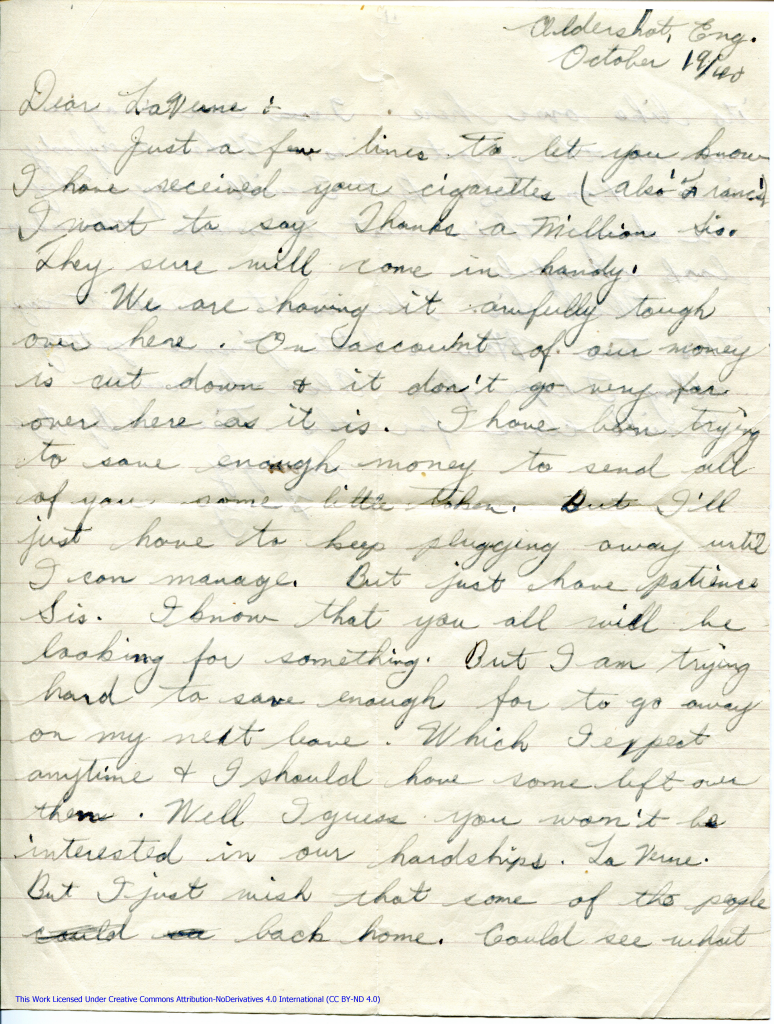 Aldershot, Eng.
October 19/40
Dear LaVerne &.
Just a few lines to let you know
I have received your cigarettes (also Francis)
I want to say Thanks a Million Sis.
They sure will come in handy.
We are having it awfully tough
over here. On account of our money
is cut down & it don't go very far
over here as it is. I have been trying
to save enough money to send all
of you some little token. But I'll
just have to keep plugging away until
I can manage. But just have patience
Sis. I know that you all will be
looking for something. But I am trying
hard to save enough for to go away
on my next leave. Which I expect
anytime & I should have some left over
then. Well I guess you won't be
interested in our hardships. LaVerne.
But I just wish that some of the people
could back home. Could see what
This Work Licensed Under Creative Commons Attribution-NoDerivatives 4.0 International (CC BY-ND 4.0)